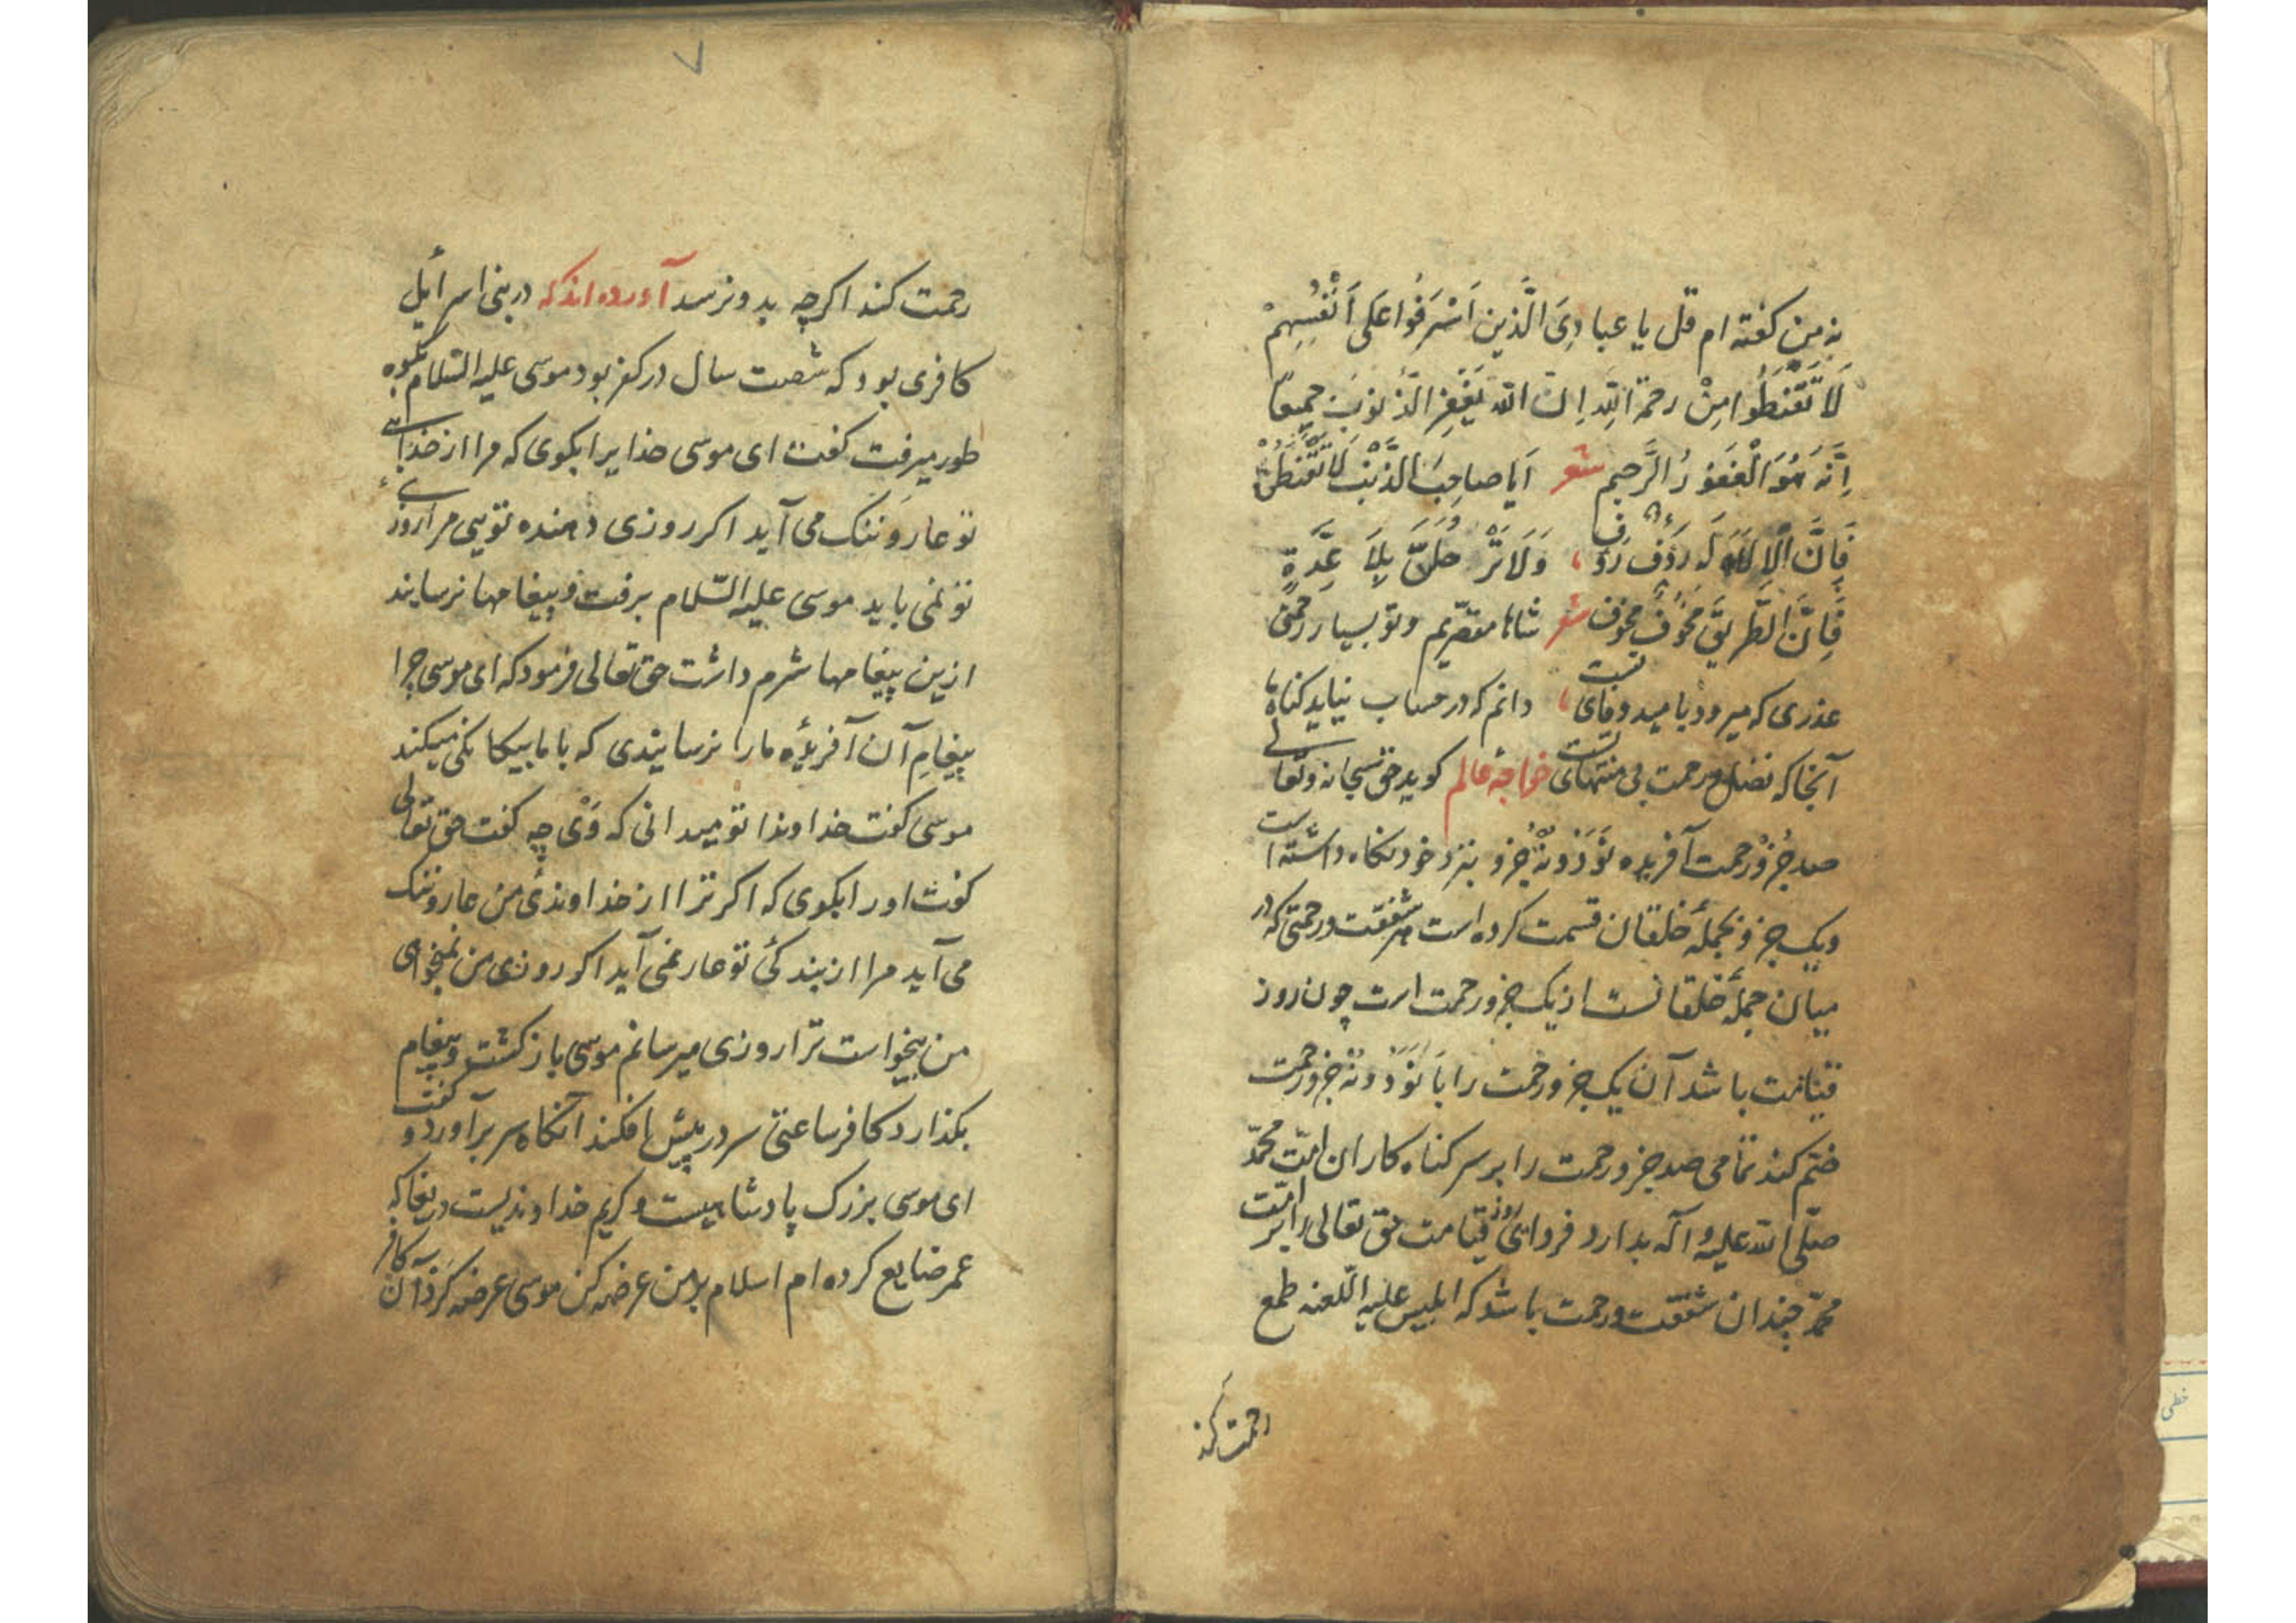 نه من کفته ام قل یا عبادِیَ الَّذین اَسْرَفُوا عَلی اَنْفُسِهِمْ
لَا تَقْنَطُوا مِنْ رحمة اللهِ اِنّ الله یَغْفِرُ الذُّنوُبَ جمیعًا
اِنَّه هُوَ الْغَفوُرُ الرَّحیم شعر اَیا صاحِبَ الذَّنْبِ لا تَقْنَطَنْ
فَاِنَّ الْاِلٰهَ رَؤُف رَؤُف وَلَا تَرْحَلَنَّ بِلَا عِدَّةٍ
فَاِنَّ الطَّریِقَ مَخُوفٌ مَخوُف شعر شاها مقصّریم و تو بسیار رحمتی
عذری که میرود بامید وفای تست دانم که در حساب نیاید کناه ما
آنجا که فضل و رحمت بی منتهای تست خواجهٔ عالم کوید حق سبحانه و تعالی
صد جُزوْ رحمت آفریده نَوَدْ و نُهْ جُزو بنزد خود نکاه داشته است
و یک جزو بجملهٔ خلقان قسمت کرده است هر شفقت و رحمتی که در
میان جملهٔ خلقانست از یک جزو رحمت است چون روز
قیامت باشد آن یک جزو رحمت را با نَوَدْ و نُهْ جزو رحمت
ختم کند تمامی صد جزو رحمت را بر سر کناه کاران امّت محمّد
صلّی الله علیه و آله بدارد فردای روز قیامت حق تعالی را بر امّت
محمّد چندان شفقت و رحمت باشد که ابلیس علیه اللّعنه طمع
رحمت کند
رحمت کند اکرچه بدو نرسد آورده اند که در بنی اسرائیل
کافری بود که شصت سال در کفر بود موسی علیه السّلام بکوه
طور میرفت کفت ای موسی خدایرا بکوی که مرا از خدائی
تو عار و ننک می آید اکر روزی دهنده تویی مرا روزی
تو نمی باید موسی علیه السّلام برفت و پیغامها نرسانید
ازین پیغامها شرم داشت حق تعالی فرمود که ای موسی چرا
پیغامِ آن آفریدهٔ ما را نرسانیدی که با ما بیکانکی میکند
موسی کفت خداوندا تو میدانی که وَیْ چه کفت حق تعالی
کفت او را بکوی که اکر ترا از خداوندیٔ من عار و ننک
می آید مرا از بندکیٔ تو عار نمی آید اکر روزی من نمیخواهی
من بیخواست ترا روزی میرسانم موسی باز کشت و پیغام
بکذارد کافر ساعتی سر در پیش افکند آنکاه سر برآورد و کفت
ای موسی بزرک پادشاهیست و کریم خداوندیست دریغا که
عمر ضایع کرده ام اسلام بر من عرضه کن موسی عرضه کَرد آن کافر